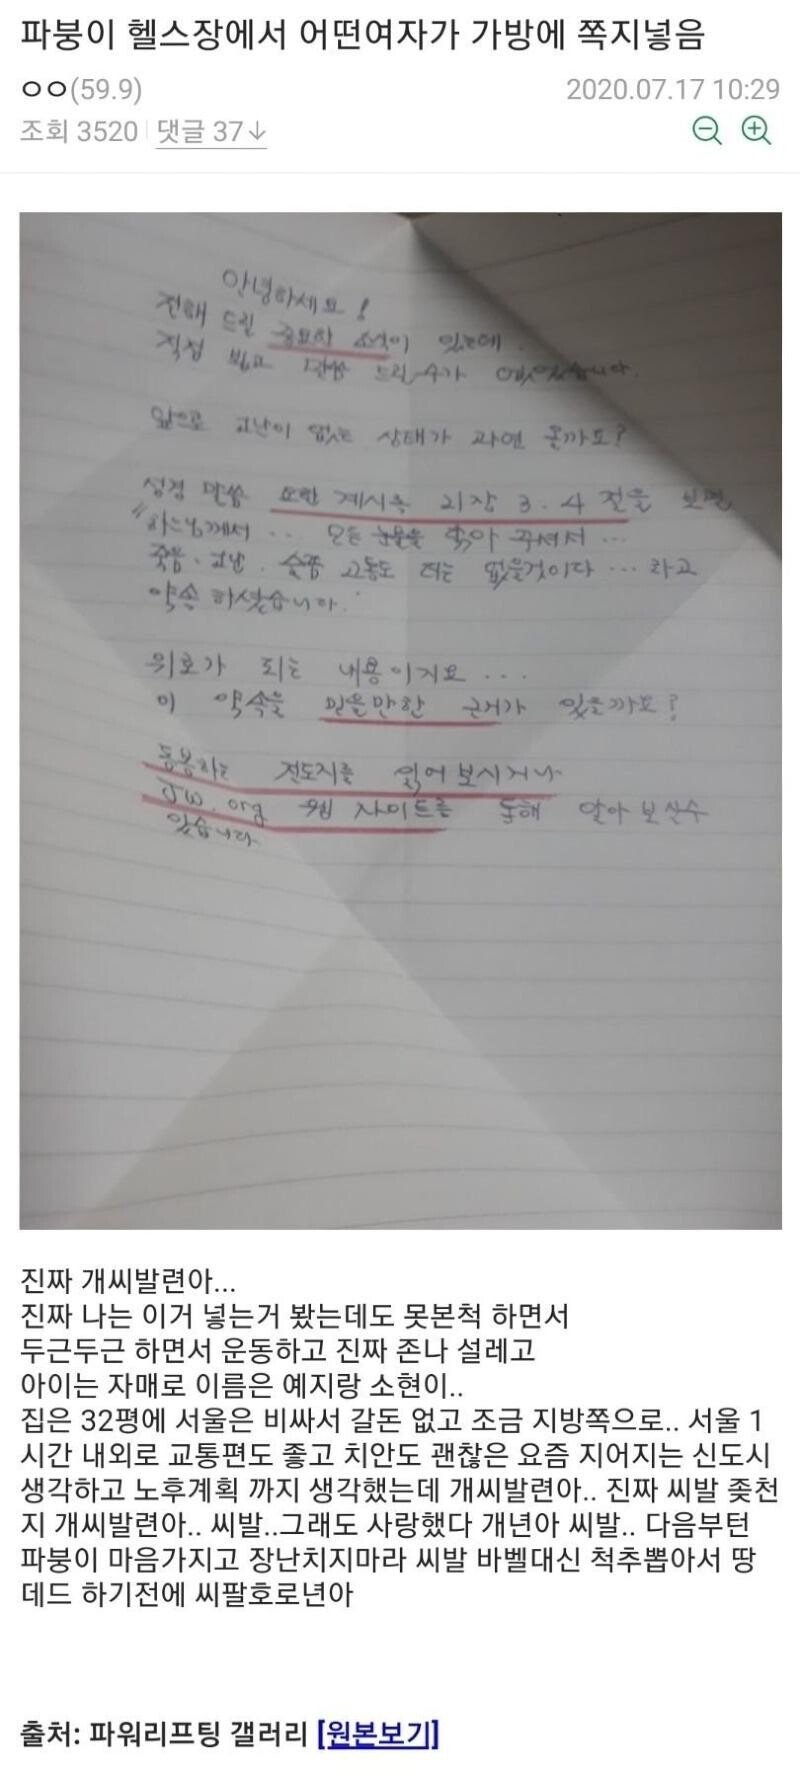 파붕이 헬스장에서 어떤여자가 가방에 쪽지넣음
ㅇㅇ(59.9)
2020.07.17 10:29
조회 3520
댓글 37↓
안녕하세요!
전해 드릴 중요한 소식이 있는데
직접 뵙고 말씀 드릴 수가 없었습니다.
앞으로 고난이 없는 상태가 과연 올까요?
성경 말씀 요한 계시록 21장 3.4 절을 보면
"하느님께서 ... 모든 눈물을 닦아 주셔서 ...
죽음, 고난, 슬픔 고통도 더는 없을것이다 ... 라고
약속 하셨습니다.
위로가 되는 내용이지요 ...
이 약속을 믿을만한 근거가 있을까요?
동봉하는 전도지를 읽어 보시거나
JW.org 웹 사이트를 통해 알아 보실수
있습니다
진짜 개씨발련아...
진짜 나는 이거 넣는거 봤는데도 못본척 하면서
두근두근 하면서 운동하고 진짜 존나 설레고
아이는 자매로 이름은 예지랑 소현이..
집은 32평에 서울은 비싸서 갈돈 없고 조금 지방쪽으로.. 서울 1
시간 내외로 교통편도 좋고 치안도 괜찮은 요즘 지어지는 신도시
생각하고 노후계획 까지 생각했는데 개씨발련아.. 진짜 씨발 좆천
지 개씨발련아.. 씨발..그래도 사랑했다 개년아 씨발.. 다음부턴
파붕이 마음가지고 장난치지마라 씨발 바벨대신 척추뽑아서 땅
데드 하기전에 씨팔호로년아
출처: 파워리프팅 갤러리 [원본보기]